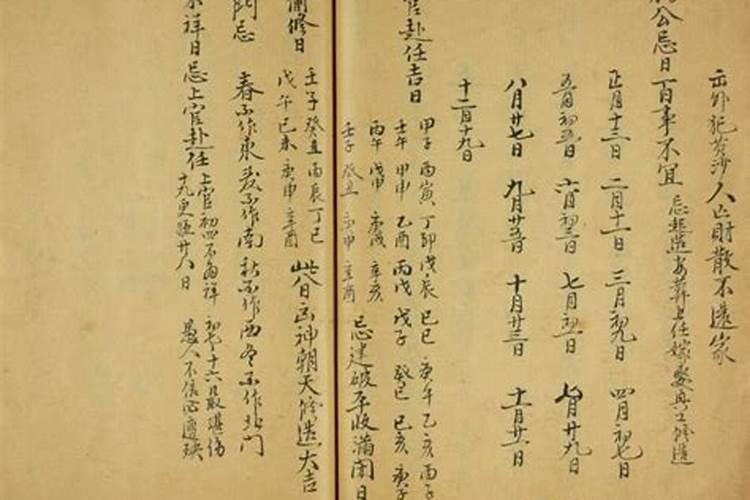 出外犯黃沙人亡財散不還家
公忌日百事不宜
忌起造安葬上任嫁娶興工修造
正月十三日 二月十一日 三月初九日 四月初七日
五月初五日 六月初三日 七月初一日 七月廿九日
八月廿七日 九月廿五日 十月廿三日 十一月廿一日
十二月十九日
官赴任吉日
甲子 丙寅 丁卯 戊辰 己巳 庚午 乙亥 丙子
壬午 甲申 乙酉 丙戌 戊子 癸巳 己亥 庚子
丙午 戊申 庚戌 辛亥
壬子 癸丑 庚申 辛酉
忌建破平收滿閉日
修日
壬子 癸丑 丙辰 丁巳
戊午 己未 庚申 辛酉
此八日凶神朝天修造大吉
門忌
春不作東 夏不作南 秋不作西 冬不作北門
不祥日忌上官赴任
上官初四不為祥 初七十六最堪傷
十九更兼廿八日 愚人不信必遭殃